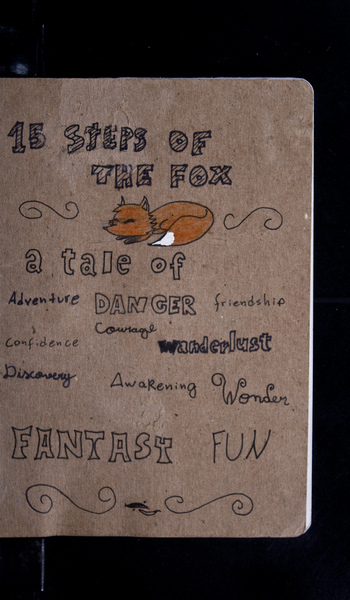 15 STEPS OF
THE FOX
a tale of
Adventure DANGER friendship
Courage
Confidence wanderlust
Discovery Awakening Wonder
FANTASY FUN